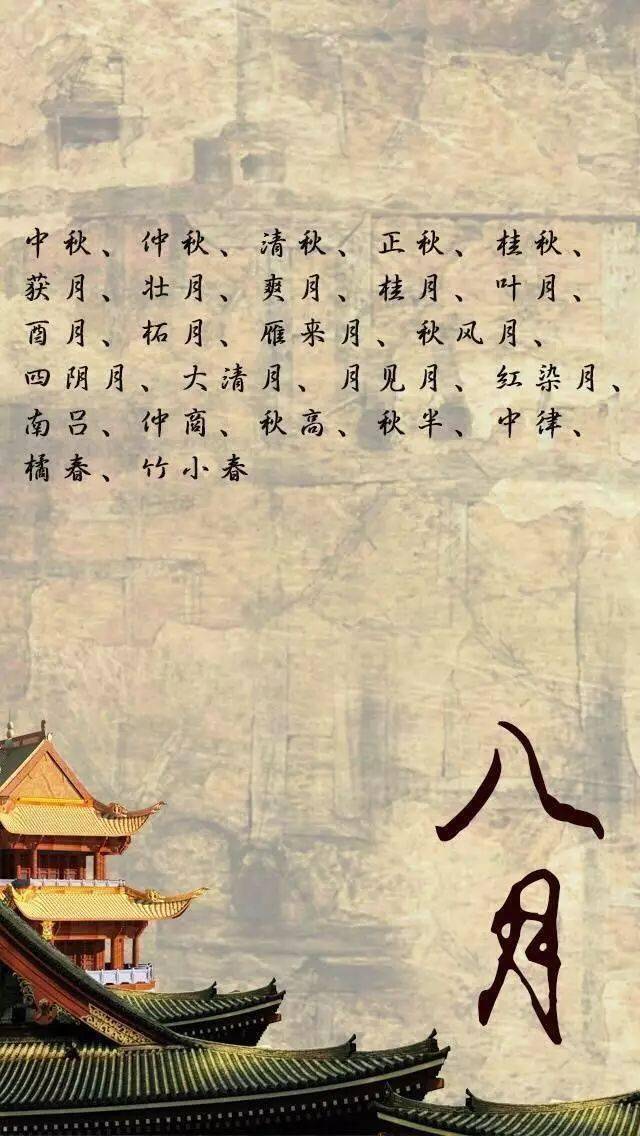 中秋、仲秋、清秋、正秋、桂秋、
获月、壮月、爽月、桂月、叶月、
酉月、柘月、雁来月、秋风月、
四阴月、大清月、月见月、红染月、
南吕、仲商、秋高、秋半、中律、
橘春、竹小春
八月